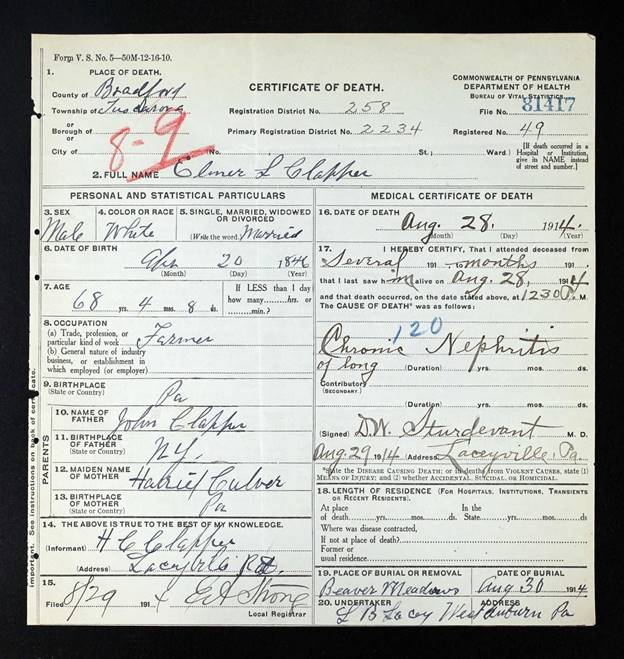 Form V. S. No. 5—50M-12-16-10.
1. PLACE OF DEATH.
County of Bradford
Township of Tuscarora
or
Borough of
or
City of
8-9
CERTIFICATE OF DEATH.
Registration District No. 258
Primary Registration District No. 2234
(No. St.; Ward)
COMMONWEALTH OF PENNSYLVANIA
DEPARTMENT OF HEALTH
BUREAU OF VITAL STATISTICS
File No. 81417
Registered No. 49
[If death occurred in a Hospital or Institution, give its NAME instead of street and number.]
2. FULL NAME Elmer L Clapper
PERSONAL AND STATISTICAL PARTICULARS
3. SEX
Male
4. COLOR OR RACE
White
5. SINGLE, MARRIED, WIDOWED OR DIVORCED
(Write the word.) Married
6. DATE OF BIRTH
Apr 20 1846
(Month) (Day) (Year)
7. AGE
68 yrs. 4 mos. 8 ds.
If LESS than 1 day
how many hrs. or
min.?
8. OCCUPATION
(a) Trade, profession, or
particular kind of work Farmer
(b) General nature of industry
business, or establishment in
which employed (or employer)
9. BIRTHPLACE
(State or Country) Pa
PARENTS
10. NAME OF FATHER John Clapper
11. BIRTHPLACE OF FATHER
(State or Country) N.Y.
12. MAIDEN NAME OF MOTHER Harriet Culver
13. BIRTHPLACE OF MOTHER
(State or Country) Pa
14. THE ABOVE IS TRUE TO THE BEST OF MY KNOWLEDGE.
(Informant) H C Clapper
(Address) Laceyville
15.
Filed 8/29 191 4
Local Registrar
Important. See instructions on back of certificate.
MEDICAL CERTIFICATE OF DEATH
16. DATE OF DEATH
Aug. 28. 1914.
(Month) (Day) (Year)
17. I HEREBY CERTIFY, That I attended deceased from
Several 191 to months 191
that I last saw him alive on Aug. 28, 1914
and that death occurred, on the date stated above, at 1230 P. M.
The CAUSE OF DEATH* was as follows:
120
Chronic Nephritis
of long
(Duration) yrs. mos. ds.
Contributory
(SECONDARY.)
(Duration) yrs. mos. ds.
(Signed) D.W. Sturdevant M. D.
Aug. 29 1914 (Address) Laceyville, Pa.
*State the DISEASE CAUSING DEATH; or in deaths from VIOLENT CAUSES, state (1) MEANS OF INJURY; and (2) whether ACCIDENTAL, SUICIDAL, or HOMICIDAL.
18. LENGTH OF RESIDENCE (FOR HOSPITALS, INSTITUTIONS, TRANSIENTS OR RECENT RESIDENTS).
At place In the
of death yrs. mos. ds. State yrs. mos. ds.
Where was disease contracted,
If not at place of death?
Former or
usual residence
19. PLACE OF BURIAL OR REMOVAL
Beaver Meadows
DATE OF BURIAL
Aug 30 1914
20. UNDERTAKER
L B Lacey
ADDRESS
West Auburn Pa